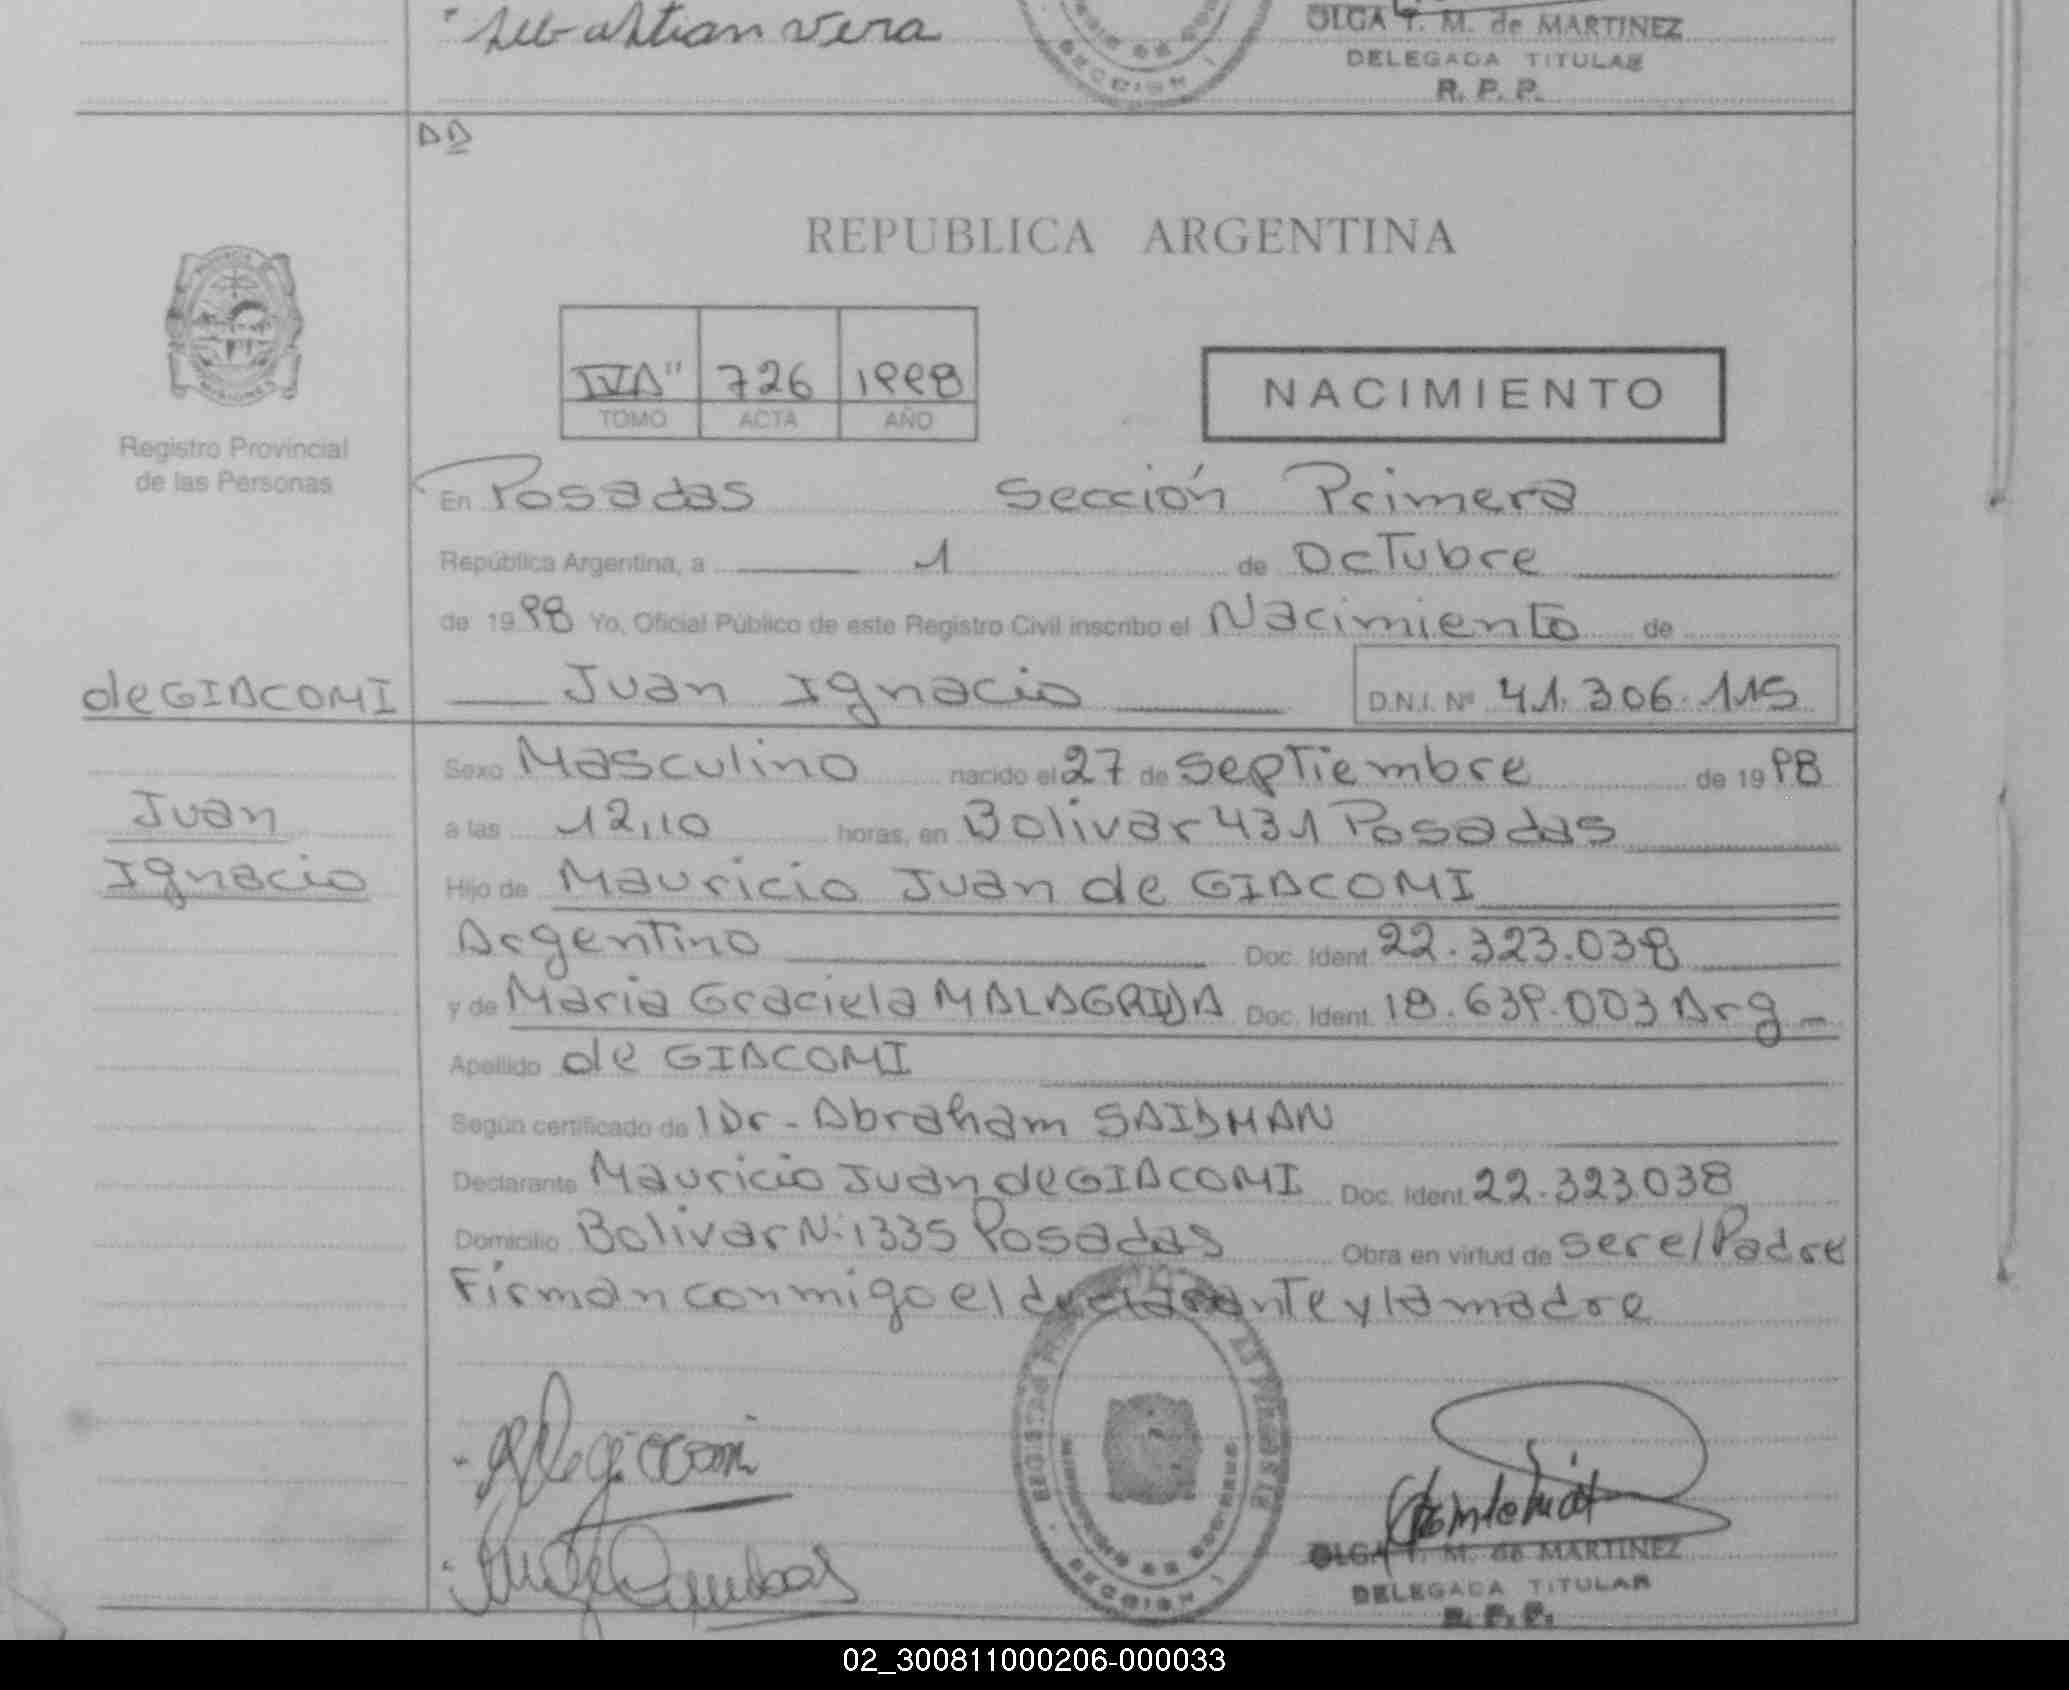 Sebastian Vera
OLGA T. M. de MARTINEZ
DELEGADA TITULAR
R. P. P.
SECCION 1
REPUBLICA ARGENTINA
IV"A" 726 1998
TOMO ACTA AÑO
NACIMIENTO
Registro Provincial
de las Personas
En Posadas Sección Primera
República Argentina, a 1 de Octubre
de 1998 Yo, Oficial Público de este Registro Civil inscribo el Nacimiento de
de GIACOMI Juan Ignacio D.N.I. Nº 41.306.115
Sexo Masculino nacido el 27 de septiembre de 1998
Juan
a las 12,10 horas, en Bolivar 431 Posadas
Ignacio
Hijo de Mauricio Juan de GIACOMI
Argentino Doc. Ident. 22.323.038
y de Maria Graciela MALAGRIDA Doc. Ident. 18.639.003 Arg
Apellido de GIACOMI
Según certificado de l Dr - Abraham SAIDMAN
Declarante Mauricio Juan de GIACOMI Doc. Ident. 22.323.038
Domicilio Bolivar N: 1335 Posadas Obra en virtud de ser el Padre
Firman conmigo el declarante y la madre
SECCION 1
OLGA T. M. de MARTINEZ
DELEGADA TITULAR
R. P. P.
02_300811000206-000033